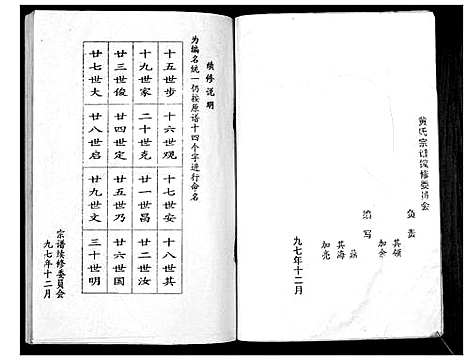 黄氏宗谱续修委员会
负责
其颂
加余
编写
其海
加亮
九七年十二月
续修说明
为编名统一仍按原谱十四个字进行命名
十五世步 十六世观 十七世安 十八世其
十九世家 二十世克 廿一世昌 廿二世汝
廿三世俊 廿四世定 廿五世乃 廿六世国
廿七世大 廿八世启 廿九世文 三十世明
宗谱续修委员会
九七年十二月